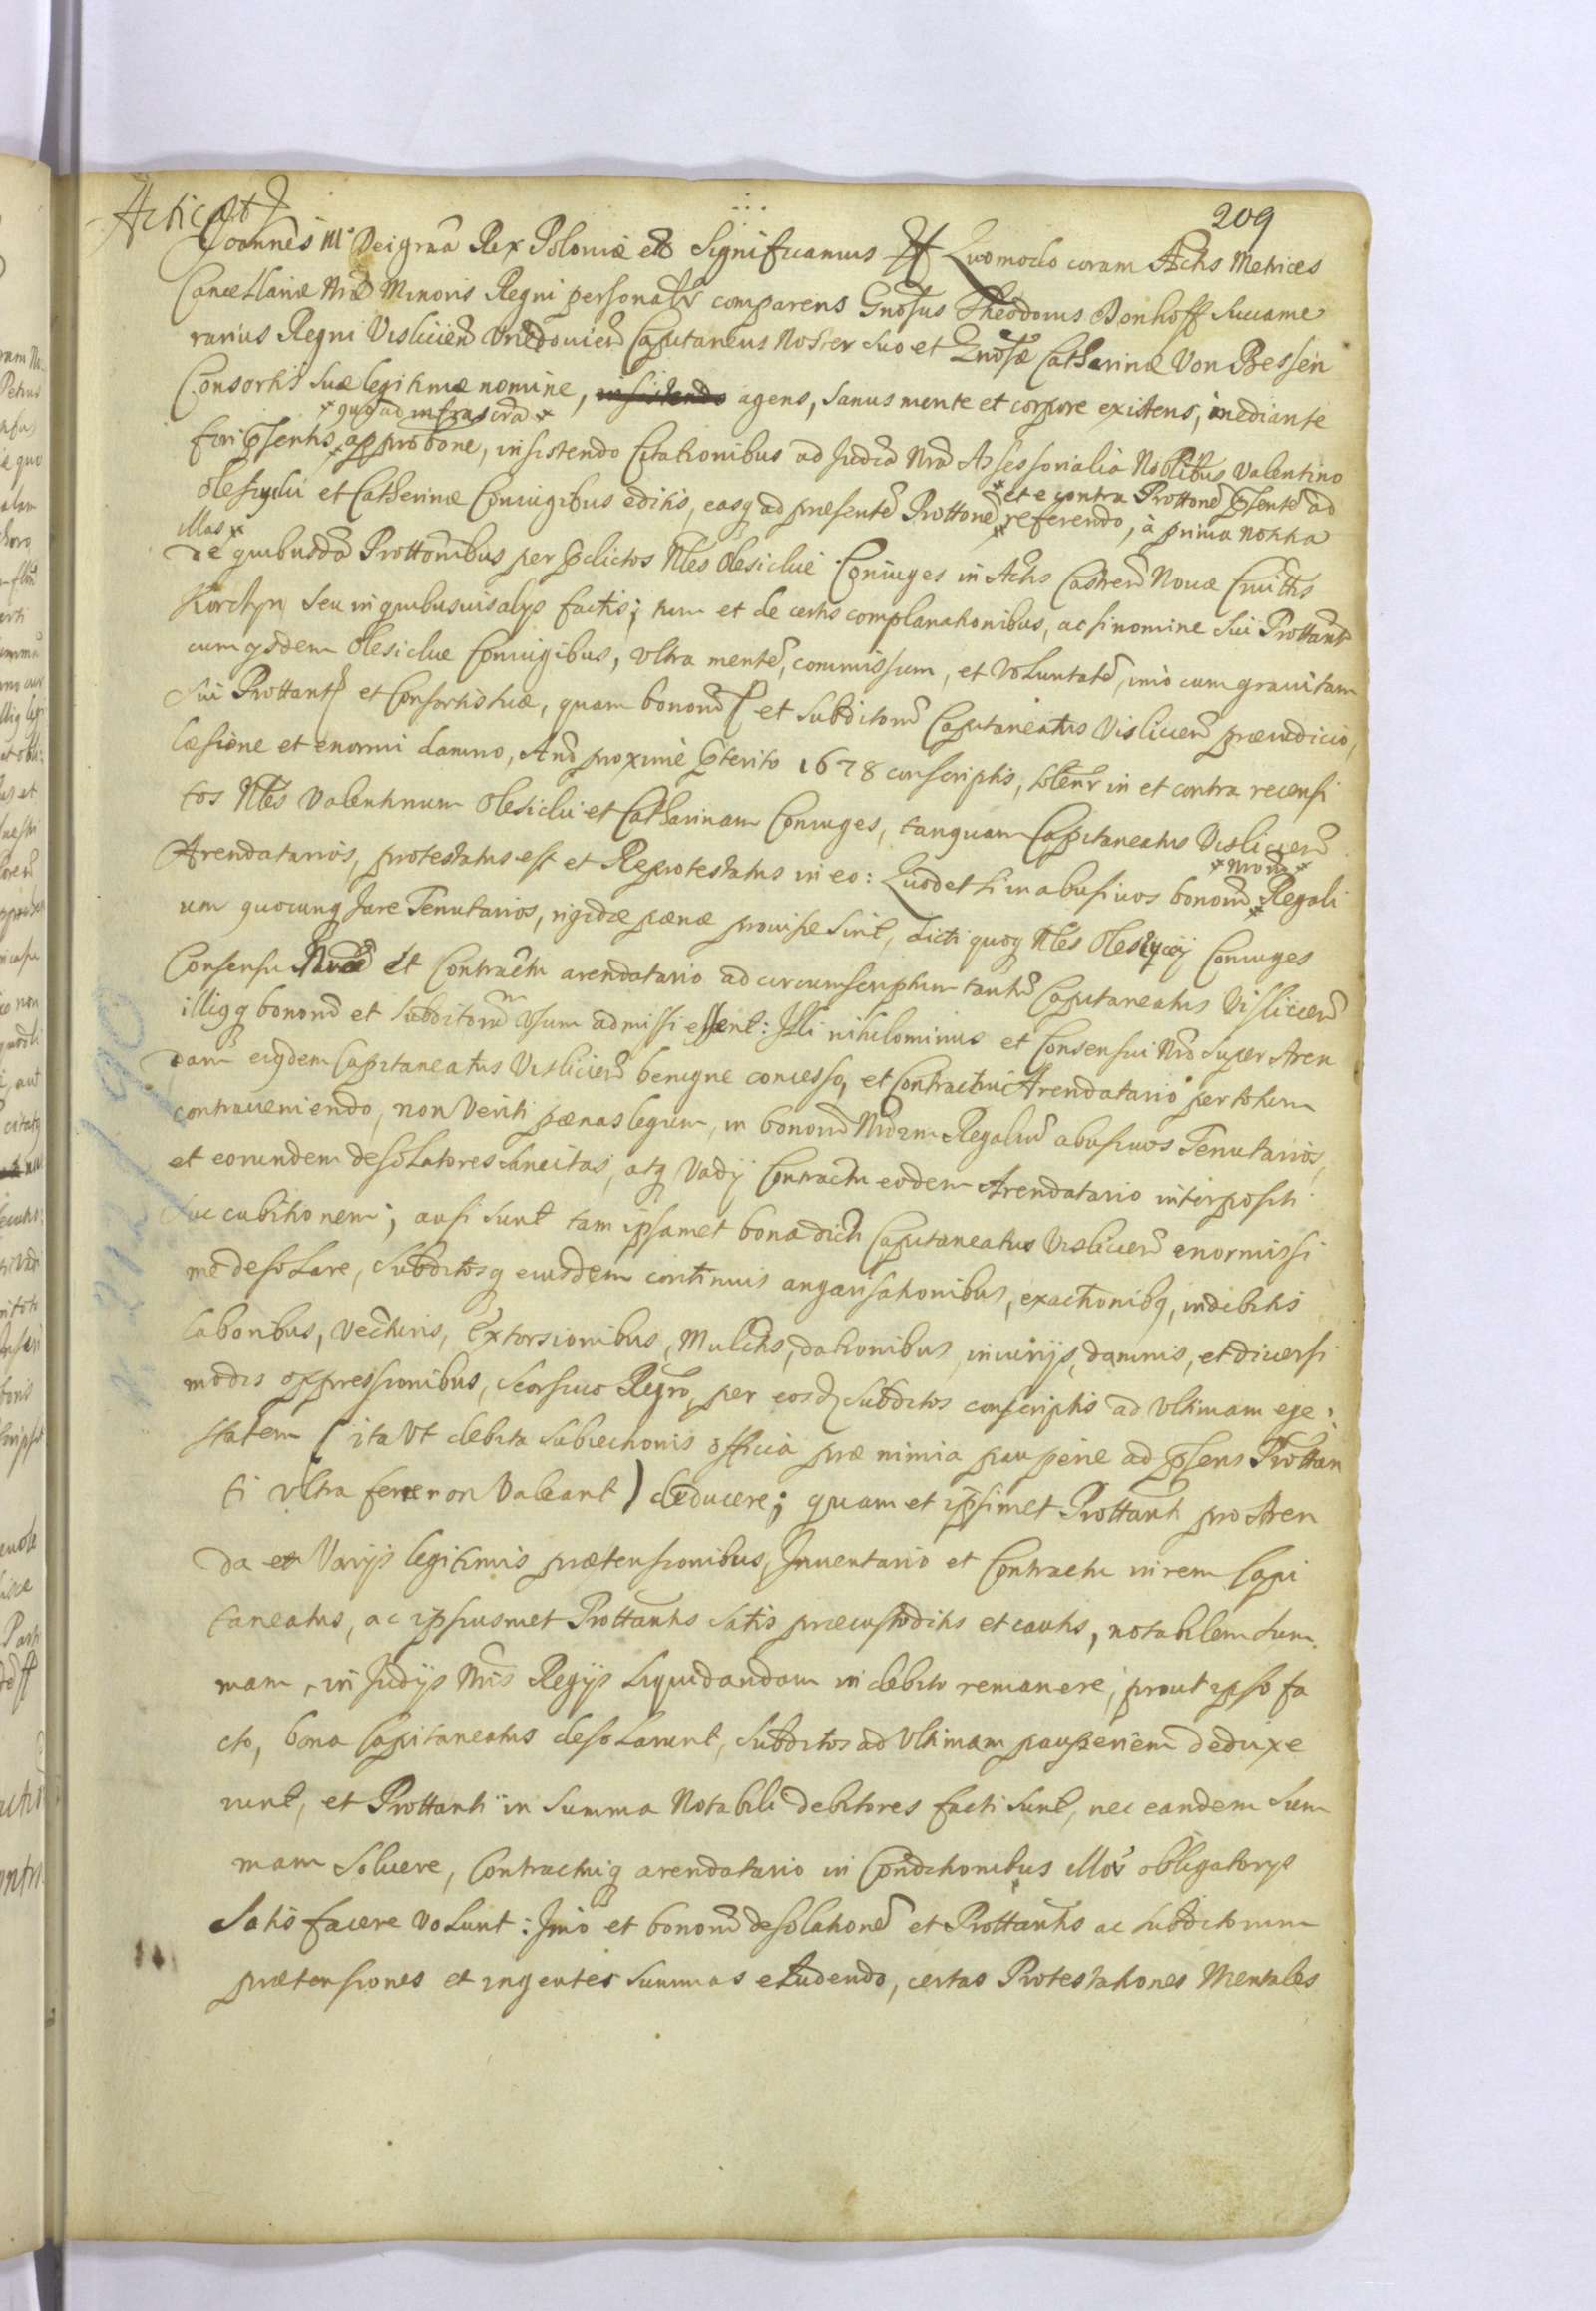 209
Joannes III Dei gra͠a Rex Poloniæ et Significamus Quomodo coram Actis Metrices
Cancellariæ Nræ Minoris Regni personalr comparens Gnosus Theodorus Donhoff Succame
rarius Regni Vislicien͠ Caputaneus Noster suo et Gnosæ Catharinæ Von Bessen
Consortis suæ legitimæ nomine, agens, sanus mente et corpore existens, mediante
* quo ad infrascra *
fori pr̃sentis * approbone, insistendo Citationibus ad Judia Nra Assessorialia Noblibus Valentino
* et e contra Prottone͠ pr̃sente͠ ad
Olesicki et Catherinæ Coniugibus editis, easq ad præsente͠ Prottone͠ * referendo, à prima notitia
illas *
de quibusda͠ Prottonibus per pr̃dictos Nles Olesickie Coniuges in Actis Castren͠ Novæ Civittis
Korchyn seu in quibusvis alys factis; tum et de certis complanationibus, ac si nomine sui Prottantis
cum ysdem Olesickie Coniugibus, ultra mente͠, commissum, et Voluntate͠, imò cum gravi tam
sui Prottantis et Consortis suæ, quam bonoru͠ et subditoru͠ Capitaneatus Vislicien͠ præiudicio,
læsione et enormi damno, Anō proximè pr̃terito 1678 conscriptis, solenr in et contra recensi
tos Nles Valentinum Olesicki et Catharinam Coniuges, tanquam Capitaneatus Vislicien͠
Arendatarios, protestatus est et Reprotestatus in eo: Quod etsi in abusivos bonoru͠ * Regali
* nroru͠ *
um quocunq Jure Tenutarios, rigidæ pænæ provisæ sint, dicti quoq Nles Olesiccy Coniuges
Consensu et Contractu arendatario ad circumscriptum tantu͠ Capitaneatus Vislicien͠
illiqq bonoru͠ et subditoru͠ usum admissi essent: Illi nihilominus et Consensui Nro super Aren
dam eiqdem Capitaneatus Vislicien͠ benigne concesso, et Contractui Arendatario per totum
contraveniendo, non veriti pænas legum, in bonoru͠ Nrorum Regaliu͠ abusivos Tenutarios,
et eorundem desolatores sancitas, atq Vadij Contractu eodem Arendatario interpositi
succubitionem; ausi sunt tam ipsamet bona dicti Capitaneatus Vislicien͠ enormissi
mè desolare, subditosq eiusdem continuis angarisationibus, exactionibq, indebitis
laboribus, vecturis, Extorsionibus, Mulctis, dationibus, iniurijs, damnis, et diversi
modis oppressionibus, seorsivo Regro, per eosd subditos conscriptis ad ultimam ege:
statem (ita ut debita subiectionis officia præ nimia pauperie ad pr̃sens Prottan
ti ultra ferre non valeant) deducere; quam et ipsimet Prottanti pro Aren
da et varijs legitimis prætensionibus, Inventario et Contractu in rem Capi
taneatus, ac ipsiusmet Prottantis satis præcustoditis et cautis, notabilem sum
mam, in Judijs Nris Regijs liquidandam in debito remanere, prout ipso fa
cto, bona Capitaneatus desolarunt, subditos ad Ultimam pauperiem deduxe
runt, et Prottanti in summa Notabili debitores facti sunt, nec eandem sum
mam solvere, Contractuiq arendatario in Conditionibus illos obligatorys
satis facere volunt: Imò et bonoru͠ desolatione͠ et Prottantis ac subditorum
prætensiones et ingentes summas eludendo, certas Protestationes Mentales